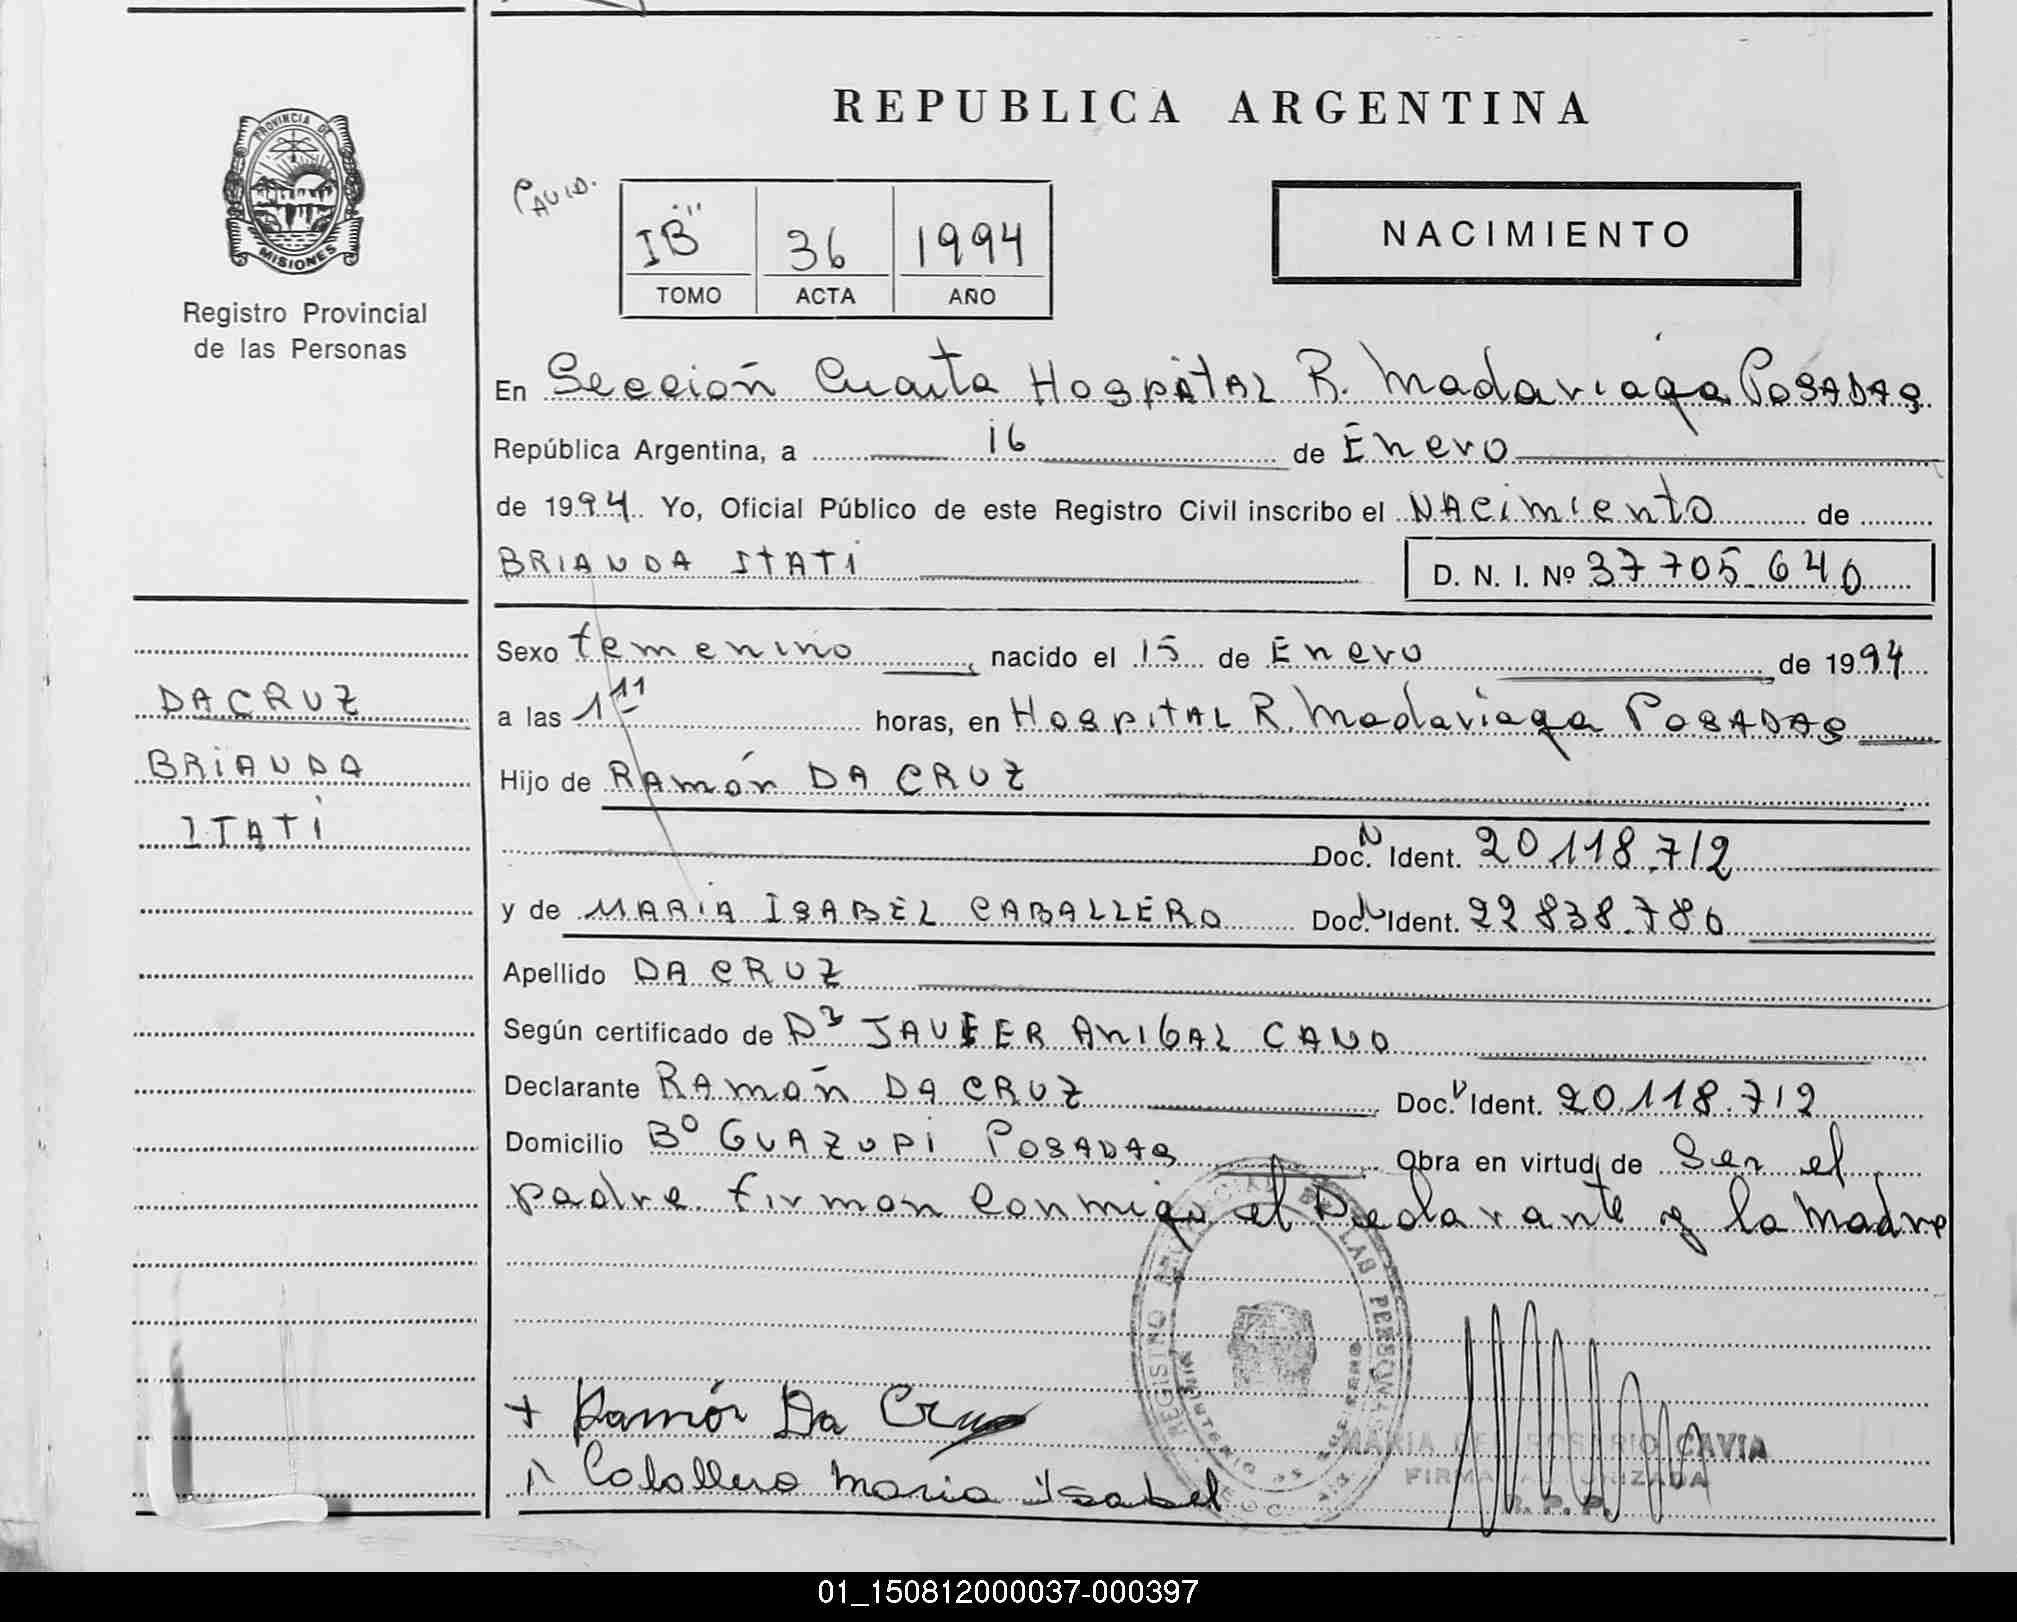 PROVINCIA DE
MISIONES
Registro Provincial
de las Personas
DA CRUZ
BRIANDA
ITATÍ
REPUBLICA ARGENTINA
IB" 36 1994
TOMO ACTA AÑO
NACIMIENTO
En Sección Cuarta Hospital R. Madariaga Posadas
República Argentina, a 16 de Enero
de 1994. Yo, Oficial Público de este Registro Civil inscribo el Nacimiento de
BRIANDA ITATÍ D. N. I. Nº 37705640
Sexo femenino, nacido el 15 de Enero de 1994
a las 1¹¹ horas, en Hospital R. Madariaga Posadas
Hijo de Ramón DA CRUZ
Doc. N Ident. 20.118.712
y de MARIA ISABEL CABALLERO Doc. Ident. 22838.780
Apellido DA CRUZ
Según certificado de Dr JAVIER ANIBAL CANO
Declarante RAMÓN DA CRUZ Doc. Ident. 20.118.712
Domicilio Bº GUAZUPI POSADAS Obra en virtud de Ser el
padre. firman conmigo el Declarante y la madre
REGISTRO PROVINCIAL DE LAS PERSONAS
MINISTERIO DE GOBIERNO
+ Ramón Da Cruz
Caballero Maria Isabel
MARIA DEL ROSARIO CAVIA
FIRMA AUTORIZADA
R. P. P.
01_150812000037-000397